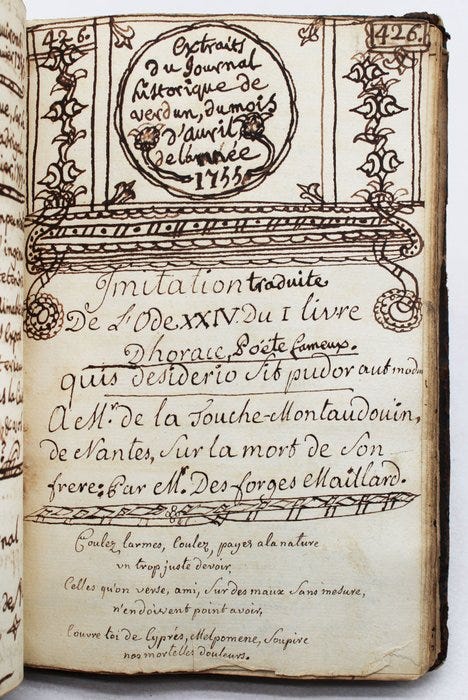 426.
426.
extraits
du Journal
historique de
verdun, du mois
d'auril
de lannée
1755
Imitation traduite
De L'Ode XXIV. Du I livre
Dhorace, Poéte fameux.
quis desiderio sit pudor aut modu
A Mr. de la Touche-Montaudouin,
de Nantes, Sur la mort de Son
frere: Par Mr. Des forges Maillard.
Coulez larmes, Coulez, payez ala nature
vn trop juste devoir,
Celles qu'on verse, ami, Sur des maux Sans mesure,
n'en doivent point avoir,
Couvre toi de Cyprés, Melpomene, Soupire
nos mortelles douleurs.